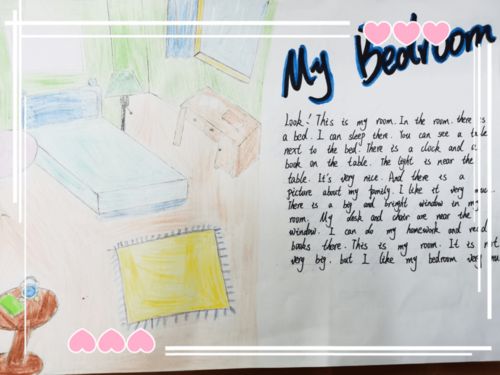 My Bedroom
Look! This is my room. In the room. there is
a bed. I can sleep then. You can see a table
next to the bed. There is a clock and a
book on the table. The light is near the
table. It's very nice. And there is a
picture about my family. I like it very
There is a big and bright window in my
room. My desk and chair are near the
window. I can do my homework and read
books there. This is my room. It is not
very big. but I like my bedroom very